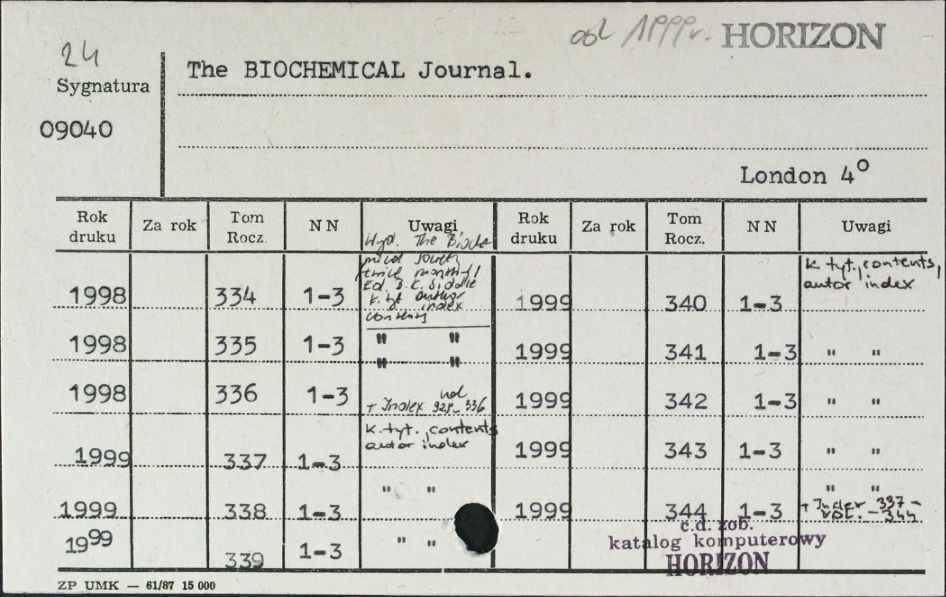 24
od 1999r. HORIZON
Sygnatura
The BIOCHEMICAL Journal.
09040
London 4°
Rok druku Za rok Tom Rocz. NN Uwagi Rok druku Za rok Tom Rocz. NN Uwagi
Wyd. The Bioche
mical
twice monthly
Ed.
k. tyt author
index
contents
k tyt., contents,
autor index
1998 334 1-3 1999 340 1-3
1998 335 1-3 " " 1999 341 1-3 " "
" "
1998 336 1-3 1999 342 1-3 " "
vol
+ Index 328-336
k. tyt., contents
autor index
1999 337 1-3 1999 343 1-3 " "
1999 338 1-3 " " 1999 344 1-3 " "
+ Index 337-
vol. - 344
1999 339 1-3 " "
c.d. zob.
katalog komputerowy
HORIZON
ZP UMK — 61/87 15 000